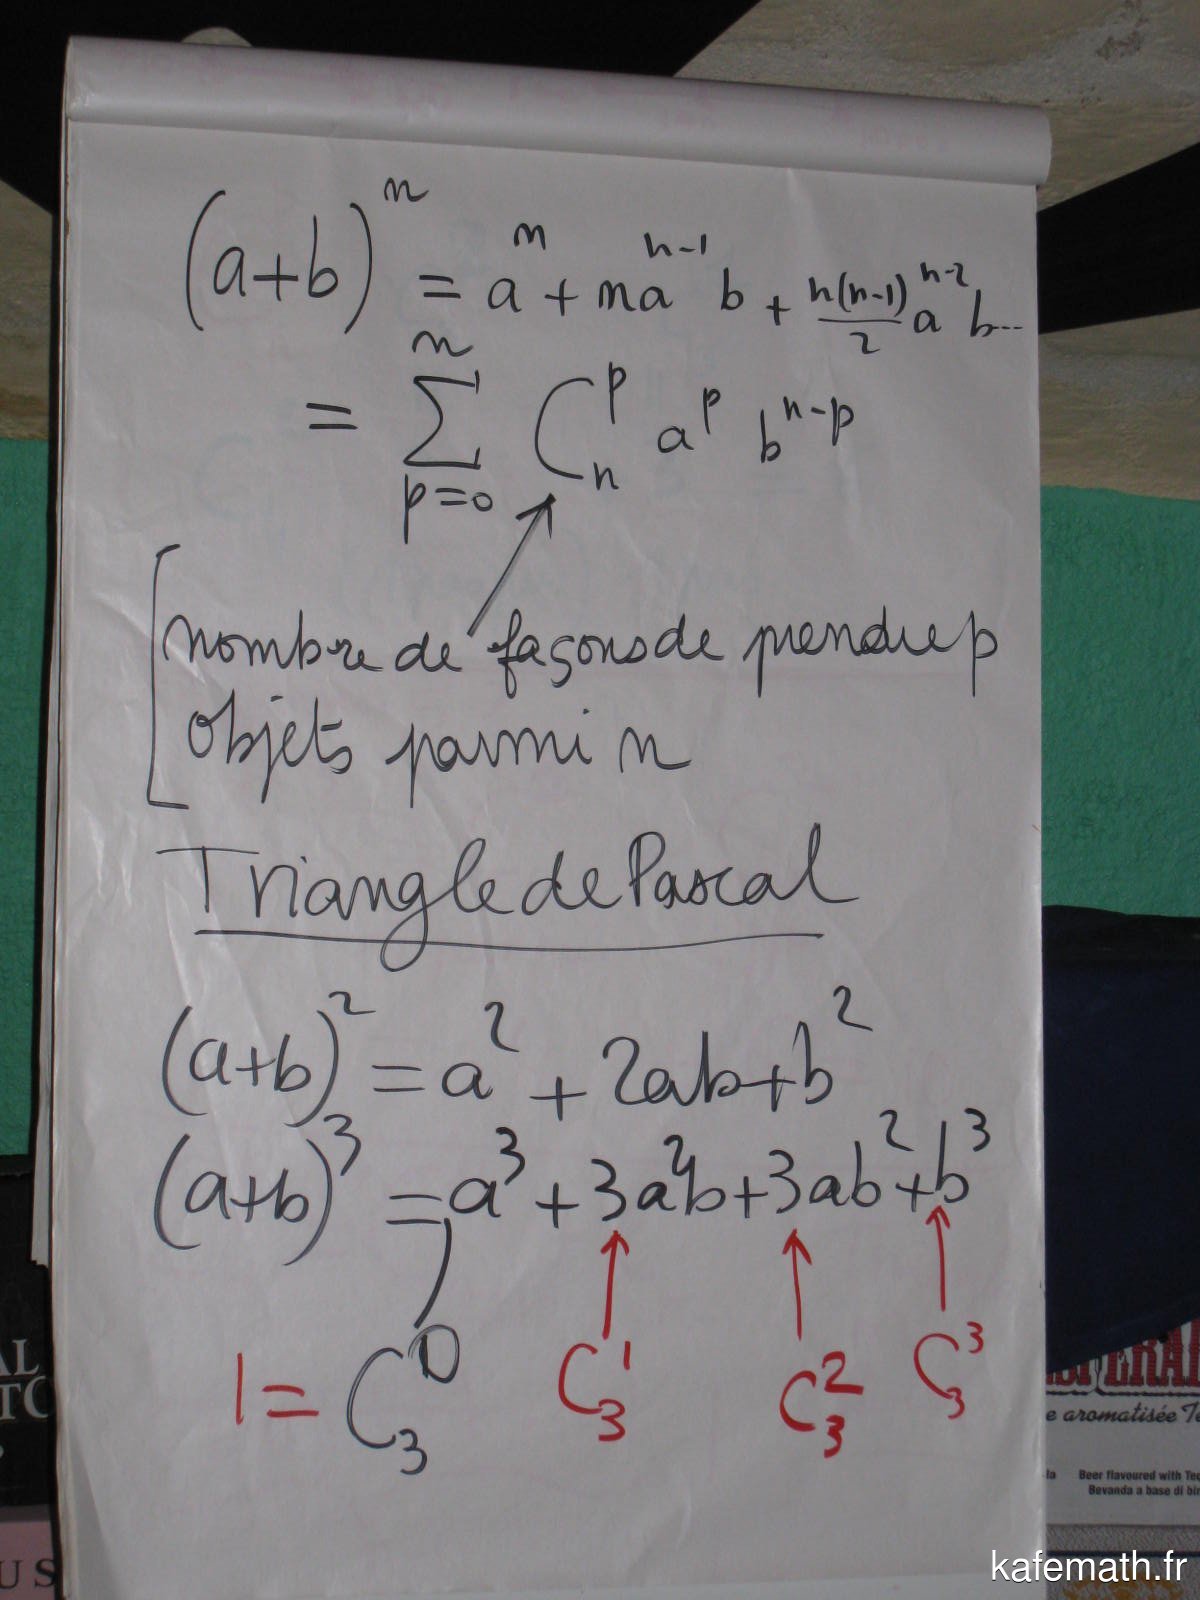 (a+b)ⁿ = aⁿ + naⁿ⁻¹ b + n(n-1)/2 aⁿ⁻² b...
= ∑ₚ₌₀ⁿ Cₙᵖ aᵖ bⁿ⁻ᵖ
nombre de façons de prendre p
objets parmi n
Triangle de Pascal
(a+b)² = a² + 2ab + b²
(a+b)³ = a³ + 3a²b + 3ab² + b³
1 = C₃⁰ C₃¹ C₃² C₃³
e aromatisée Te
Beer flavoured with Teq
Bevanda a base di bir
AL
TO
US
kafemath.fr